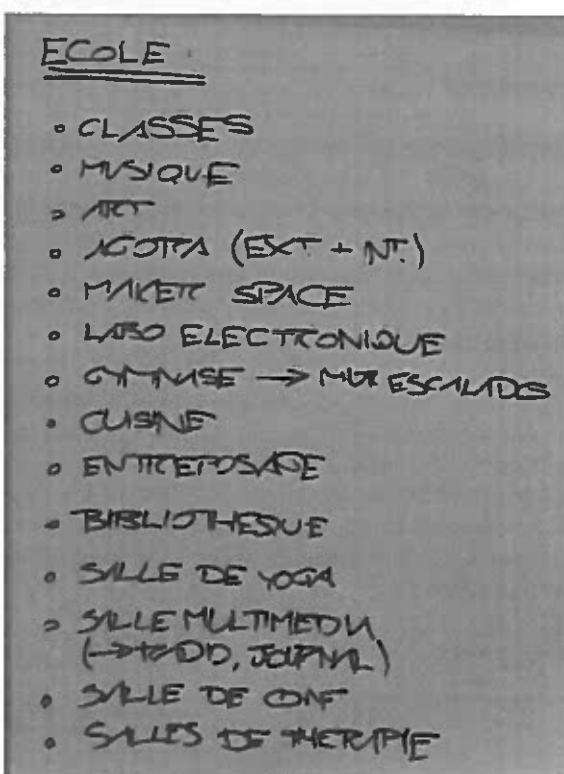 ECOLE
• CLASSES
• MUSIQUE
• ART
• AGORA (EXT + INT.)
• MAKER SPACE
• LABO ELECTRONIQUE
• GYMNASE → MUR ESCALADES
• CUISINE
• ENTREPOSAGE
• BIBLIOTHESQUE
• SALLE DE YOGA
• SALLE MULTIMEDIA
(→ RADIO, JOURNAL)
• SALLE DE CONF
• SALLES DE THERAPIE